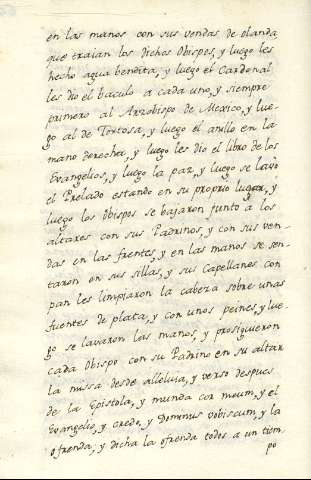 en las manos con sus vendas de olanda
que traian los dichos Obispos, y luego les
hecho agua bendita, y luego el Cardenal
les dio el baculo a cada uno, y siempre
primero al Arzobispo de Mexico, y lue-
go al de Tortosa, y luego el anillo en la
mano derecha, y luego les dio el libro de los
Evangelios, y luego la paz, y luego se lavò
el Prelado estando en su proprio lugar, y
luego los Obispos se bajaron junto a los
altares con sus Padrinos, y con sus ven-
das en las frentes, y en las manos se sen-
taron en sus sillas, y sus Capellanes con
pan les limpiaron la cabeza sobre unas
fuentes de plata, y con unos peines, y lue-
go se lavaron las manos, y prosiguieron
cada Obispo con su Padrino en su altar
la missa desde alleluia, y verso despues
de la Epistola, y munda cor meum, y el
Evangelio, y credo, y Dominus vobiscum, y la
ofrenda, y dicha la ofrenda todos a un tiem-
po